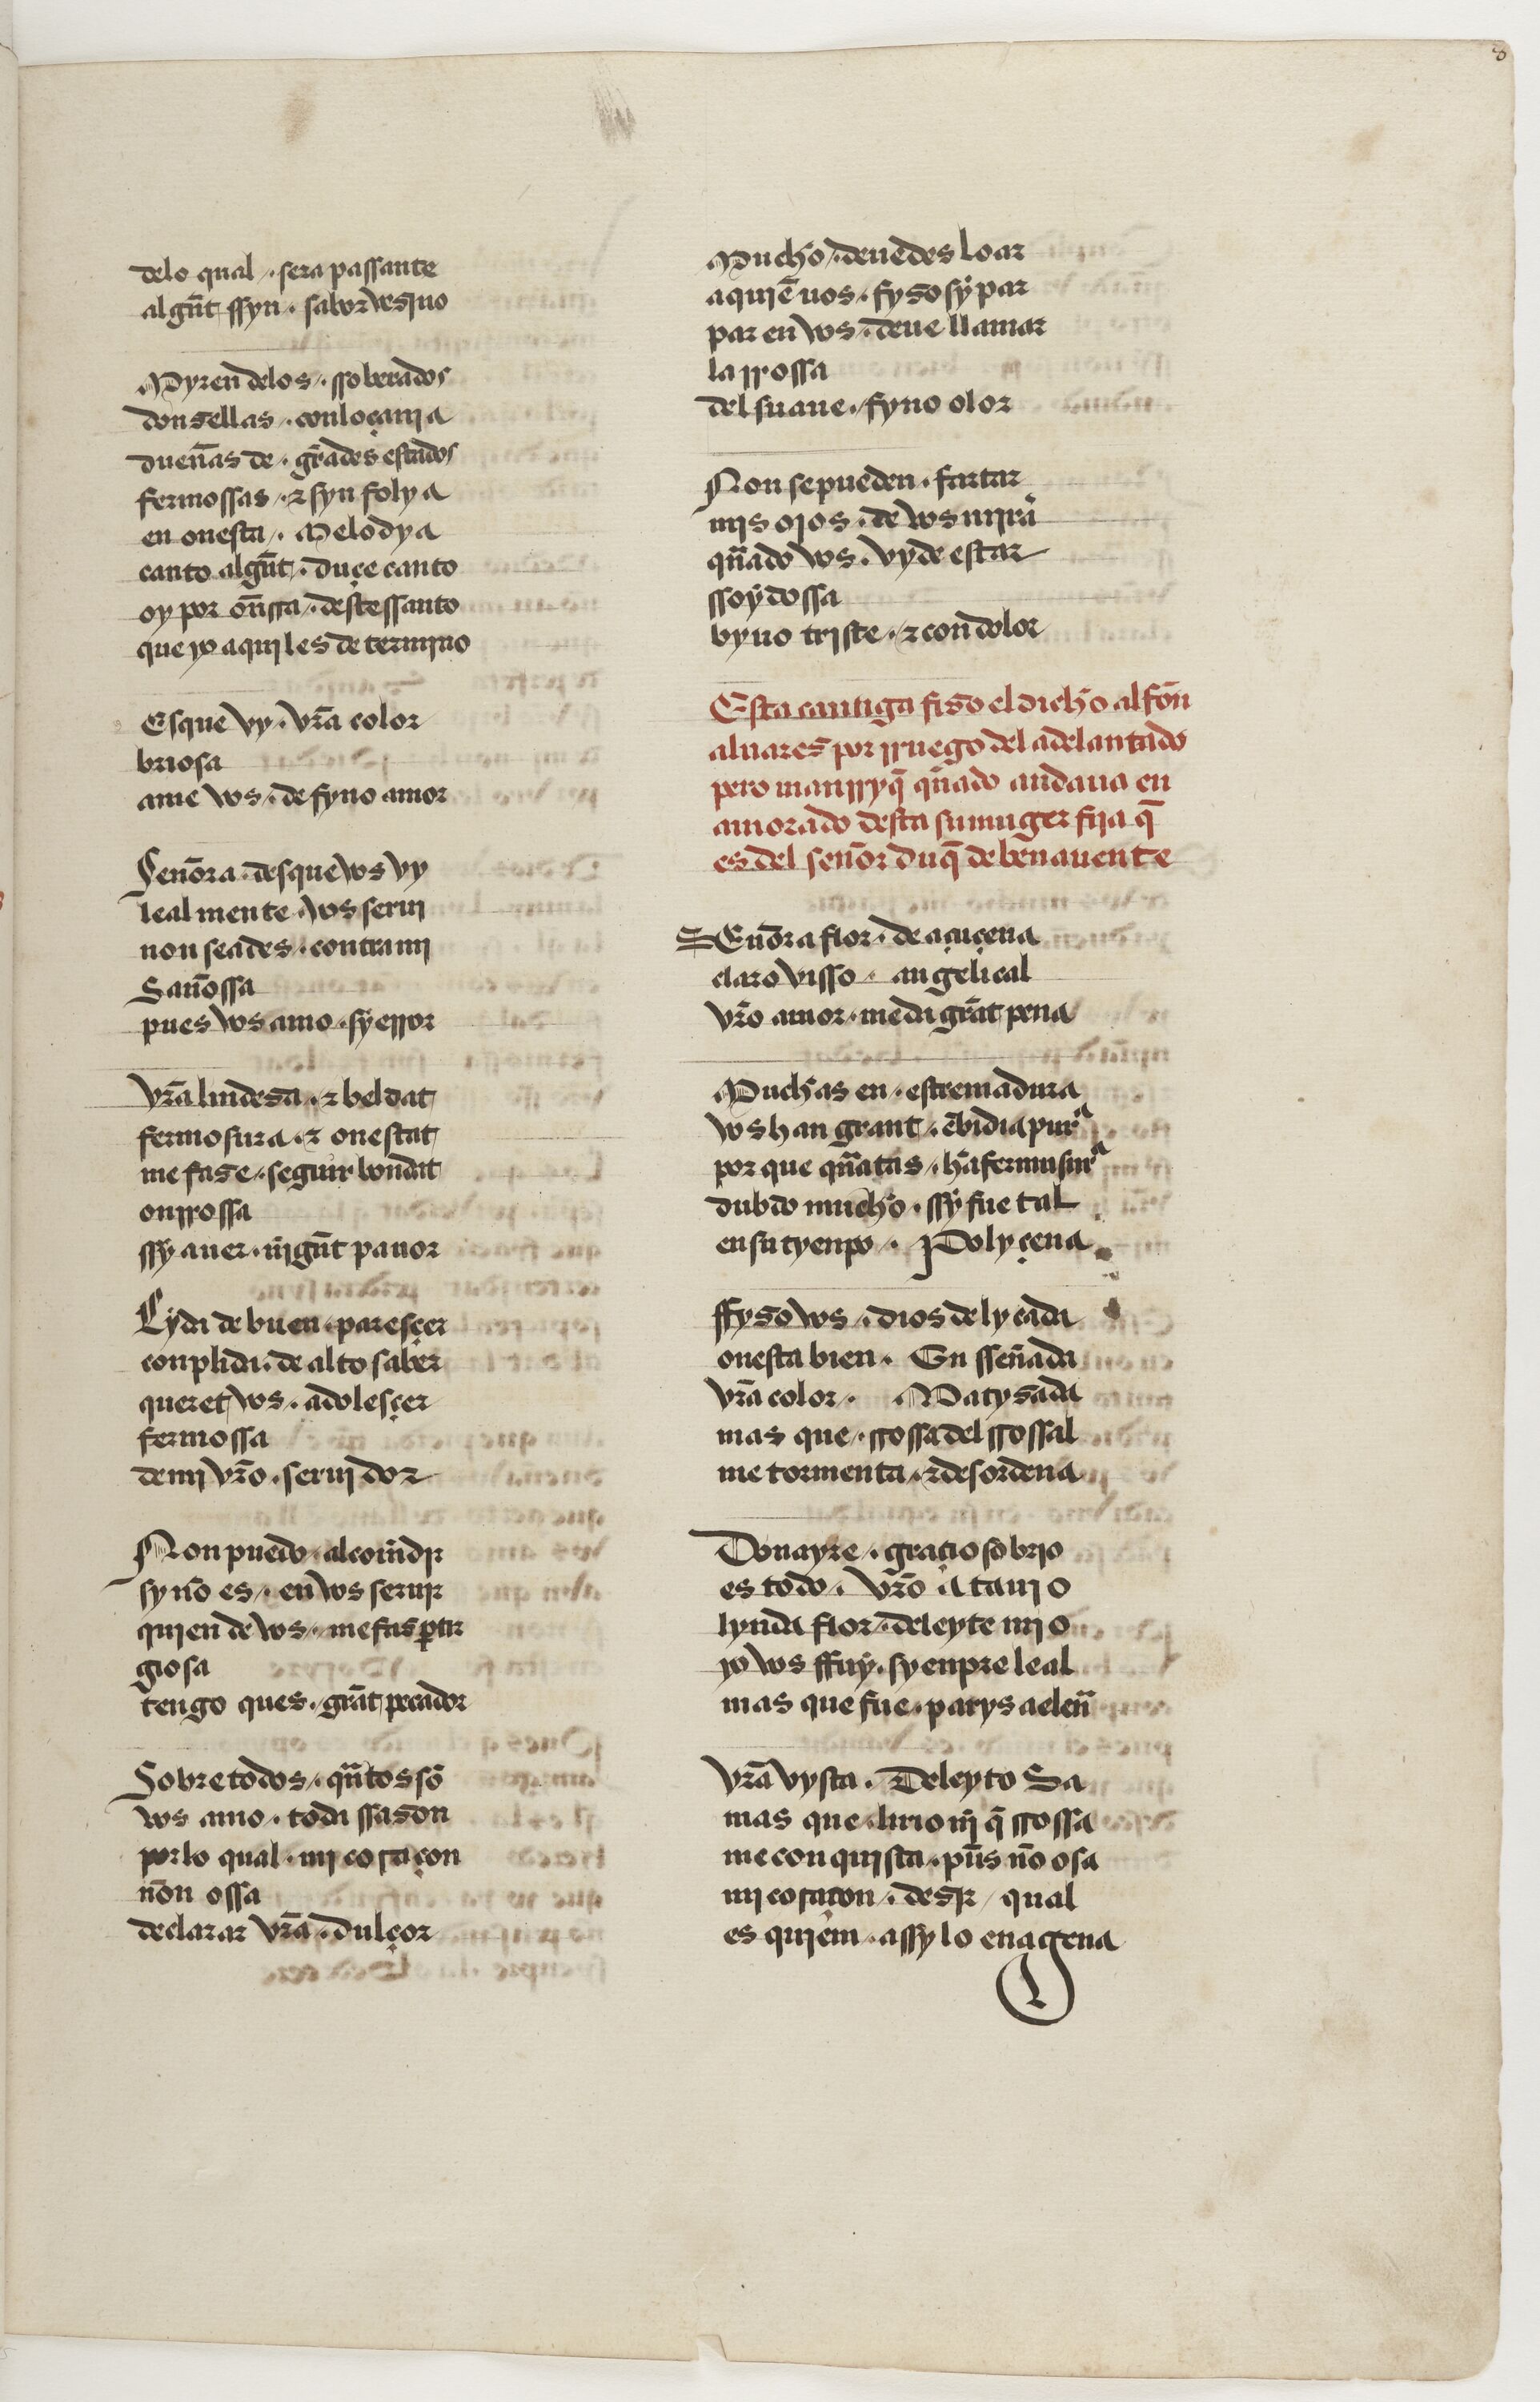 8
delo qual /. sera passante
algũt ssyn . sabor vesq̃no
Myren delos /. ssoberados
donzellas /. con loçania
dueñas de . grãdes estados
fermossas /. & syn folya
en onesta /. Melodya
canto algũt . duçe canto
oy por onrra /. deste ssanto
que yo aqui les determino
Esque vy . vr̃a color
briosa
ame vos /. de fyno amor
Señora . desque vos vy
leal mente . vos serui
non seades . contra mi
Sañossa
pues vos amo . sỹ error
vr̃a lindeza . & beldat
fermosura . & onestat
me faze . seguir bondat
onrrossa
ssỹ auer . nĩgũt pauor
Lỹda de buen . paresçer
conplida . de alto saber
queret vos . adolesçer
fermossa
de mi vr̃o . seruidor
Non puedo . al comĩdir
sy nõ es /. en vos seruir
quien de vos /. me faz ꝑtir
giosa
tengo ques /. grãt pecador
Sobre todos /. qũtos sõ
vos amo . toda ssazon
por lo qual . mi coraçon
nõn ossa
declarar vr̃a . dulçor
Mucho /. deuedes loar
a quiẽ uos . fyzo sỹ par
par en vos . deue llamar
la rrossa
del suaue . fyno olor
Non se pueden . fartar
mis ojos . de vos mirar
qũado vos . vyde estar
ssoỹdossa
byuo triste . & con dolor
Esta cantiga fizo el dicho alfõn
aluares por rruego del adelantado
pero manrryq̃ qũado andaua en
amorado desta su muger fija q̃
es del señor duq̃ de benauente
SEñora flor . de açuçena
claro visso /. angelical
vr̃o amor . me da grãt pena
Muchas en . estremadura
vos han grant . ẽbidia pura
por que qũatas /. hã fermusura
dubdo mucho . ssỹ fue tal
en su tyenpo /. Polyçena
ffyzo vos /. dios delycada
onesta bien . En sseñada
vr̃a color . Matyzada
mas que /. rrossa del rrossal
me tormenta . & desordena
Donayre /. graçioso brio
es todo . vr̃o atauio
lynda flor . deleyte mio
yo vos ffuỹ . syenpre leal
mas que fue . parys a eleñ
vr̃a vysta . DeleytoSa
mas que lirio nĩ q̃ rrossa
me conquista . pũs nõ osa
mi coraçon /. dezir / qual
es quiem . assy lo enagena